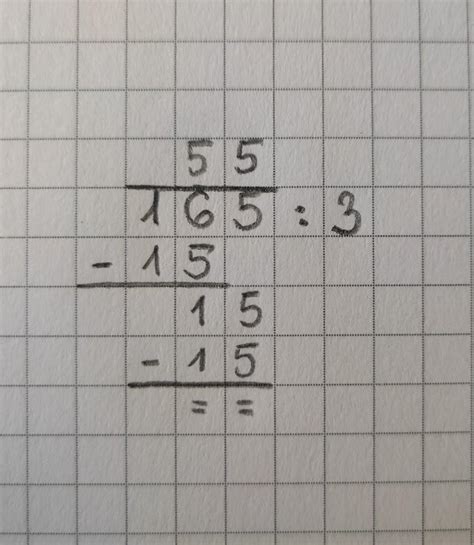 55
165 : 3
- 15
15
- 15
= =